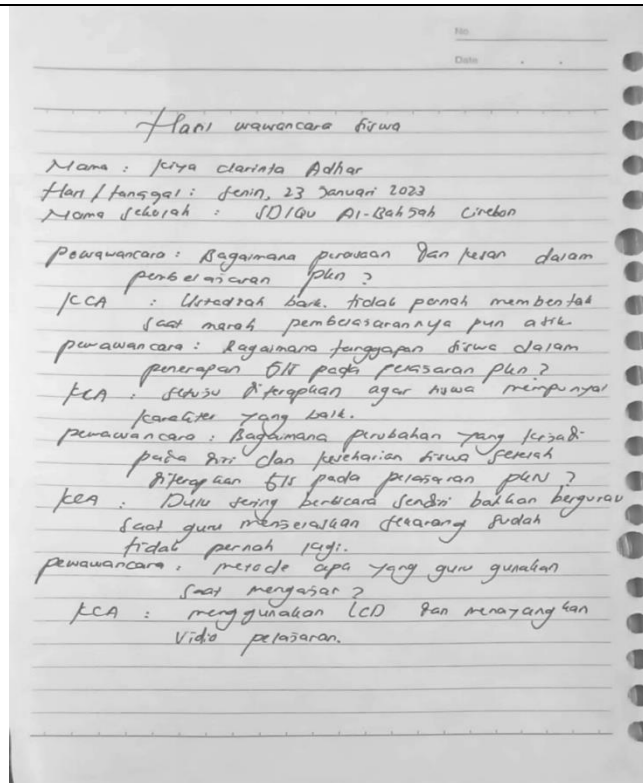 No.
Date
Hasil wawancara siswa
Nama : Kiya Clarinta Adhar
Hari / tanggal : Senin, 23 Januari 2023
Nama Sekolah : SDIQu Al-Bahjah Cirebon
Pewawancara : Bagaimana perasaan dan kesan dalam
pembelajaran pkn ?
KCA : Ustadzah baik. tidak pernah membentak
saat marah pembelajarannya pun asik.
pewawancara : Bagaimana tanggapan siswa dalam
penerapan pada pelajaran pkn ?
KCA : setuju diterapkan agar siswa mempunyai
karakter yang baik.
pewawancara : Bagaimana perubahan yang terjadi
pada diri dan keseharian siswa setelah
diterapkan pada pelajaran pkn ?
KCA : Dulu sering berbicara sendiri bahkan bergurau
saat guru menjelaskan sekarang sudah
tidak pernah lagi.
pewawancara : metode apa yang guru gunakan
saat mengajar ?
KCA : menggunakan LCD dan menayangkan
Vidio pelajaran.